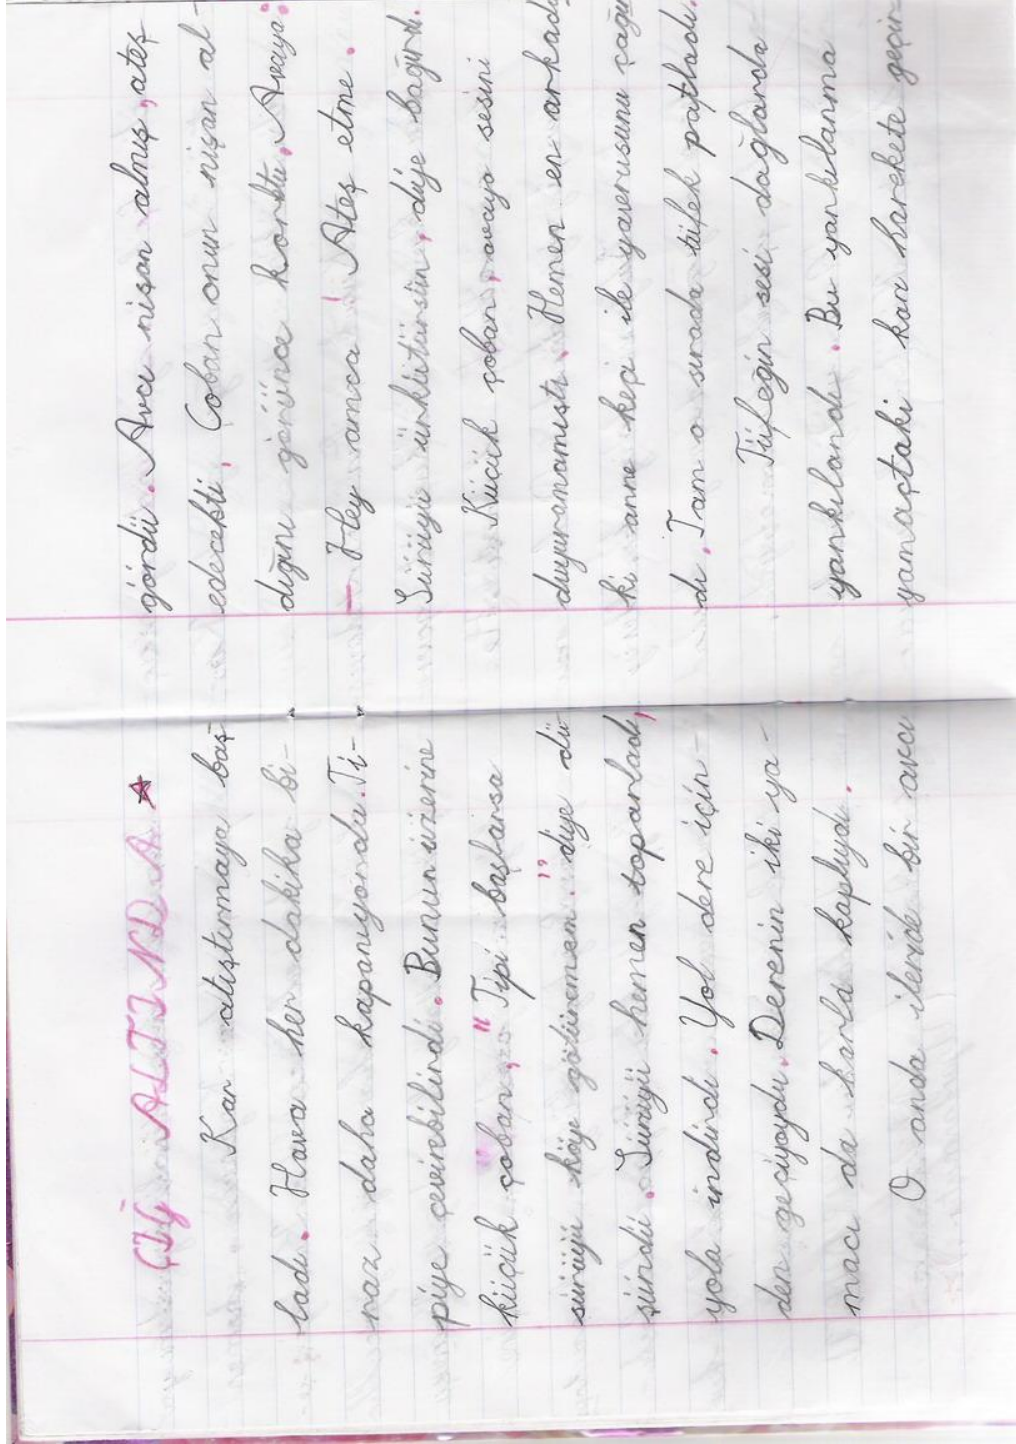 ÇIĞ ALTINDA
Kar atıştırmaya baş-
ladı. Hava her dakika bi-
raz daha kapanıyordu. Ti-
piye çevirebilirdi. Bunun üzerine
küçük çoban, " Tipi başlarsa
sürüyü köye götüremem." diye dü-
şündü. Sürüyü hemen toparladı,
yola indirdi. Yol dere için-
den geçiyoydu. Derenin iki ya-
macı da karla kaplıydı.
O anda ileride bir avcı
gördü. Avcı nişan almış, ateş
edecekti. Çoban onun nişan al-
dığını görünce korktu. Avcıya:
— Hey amca! Ateş etme.
Sürüyü ürkütürsün, diye bağırdı.
Küçük çoban, avcıya sesini
duyuramamıştı. Hemen en arkada
ki anne keçi ile yavrusunu çağır
dı. Tam o sırada tüfek patladı.
Tüfeğin sesi dağlarda
yankılandı. Bu yankılanma
yamaçtaki karı harekete geçir-